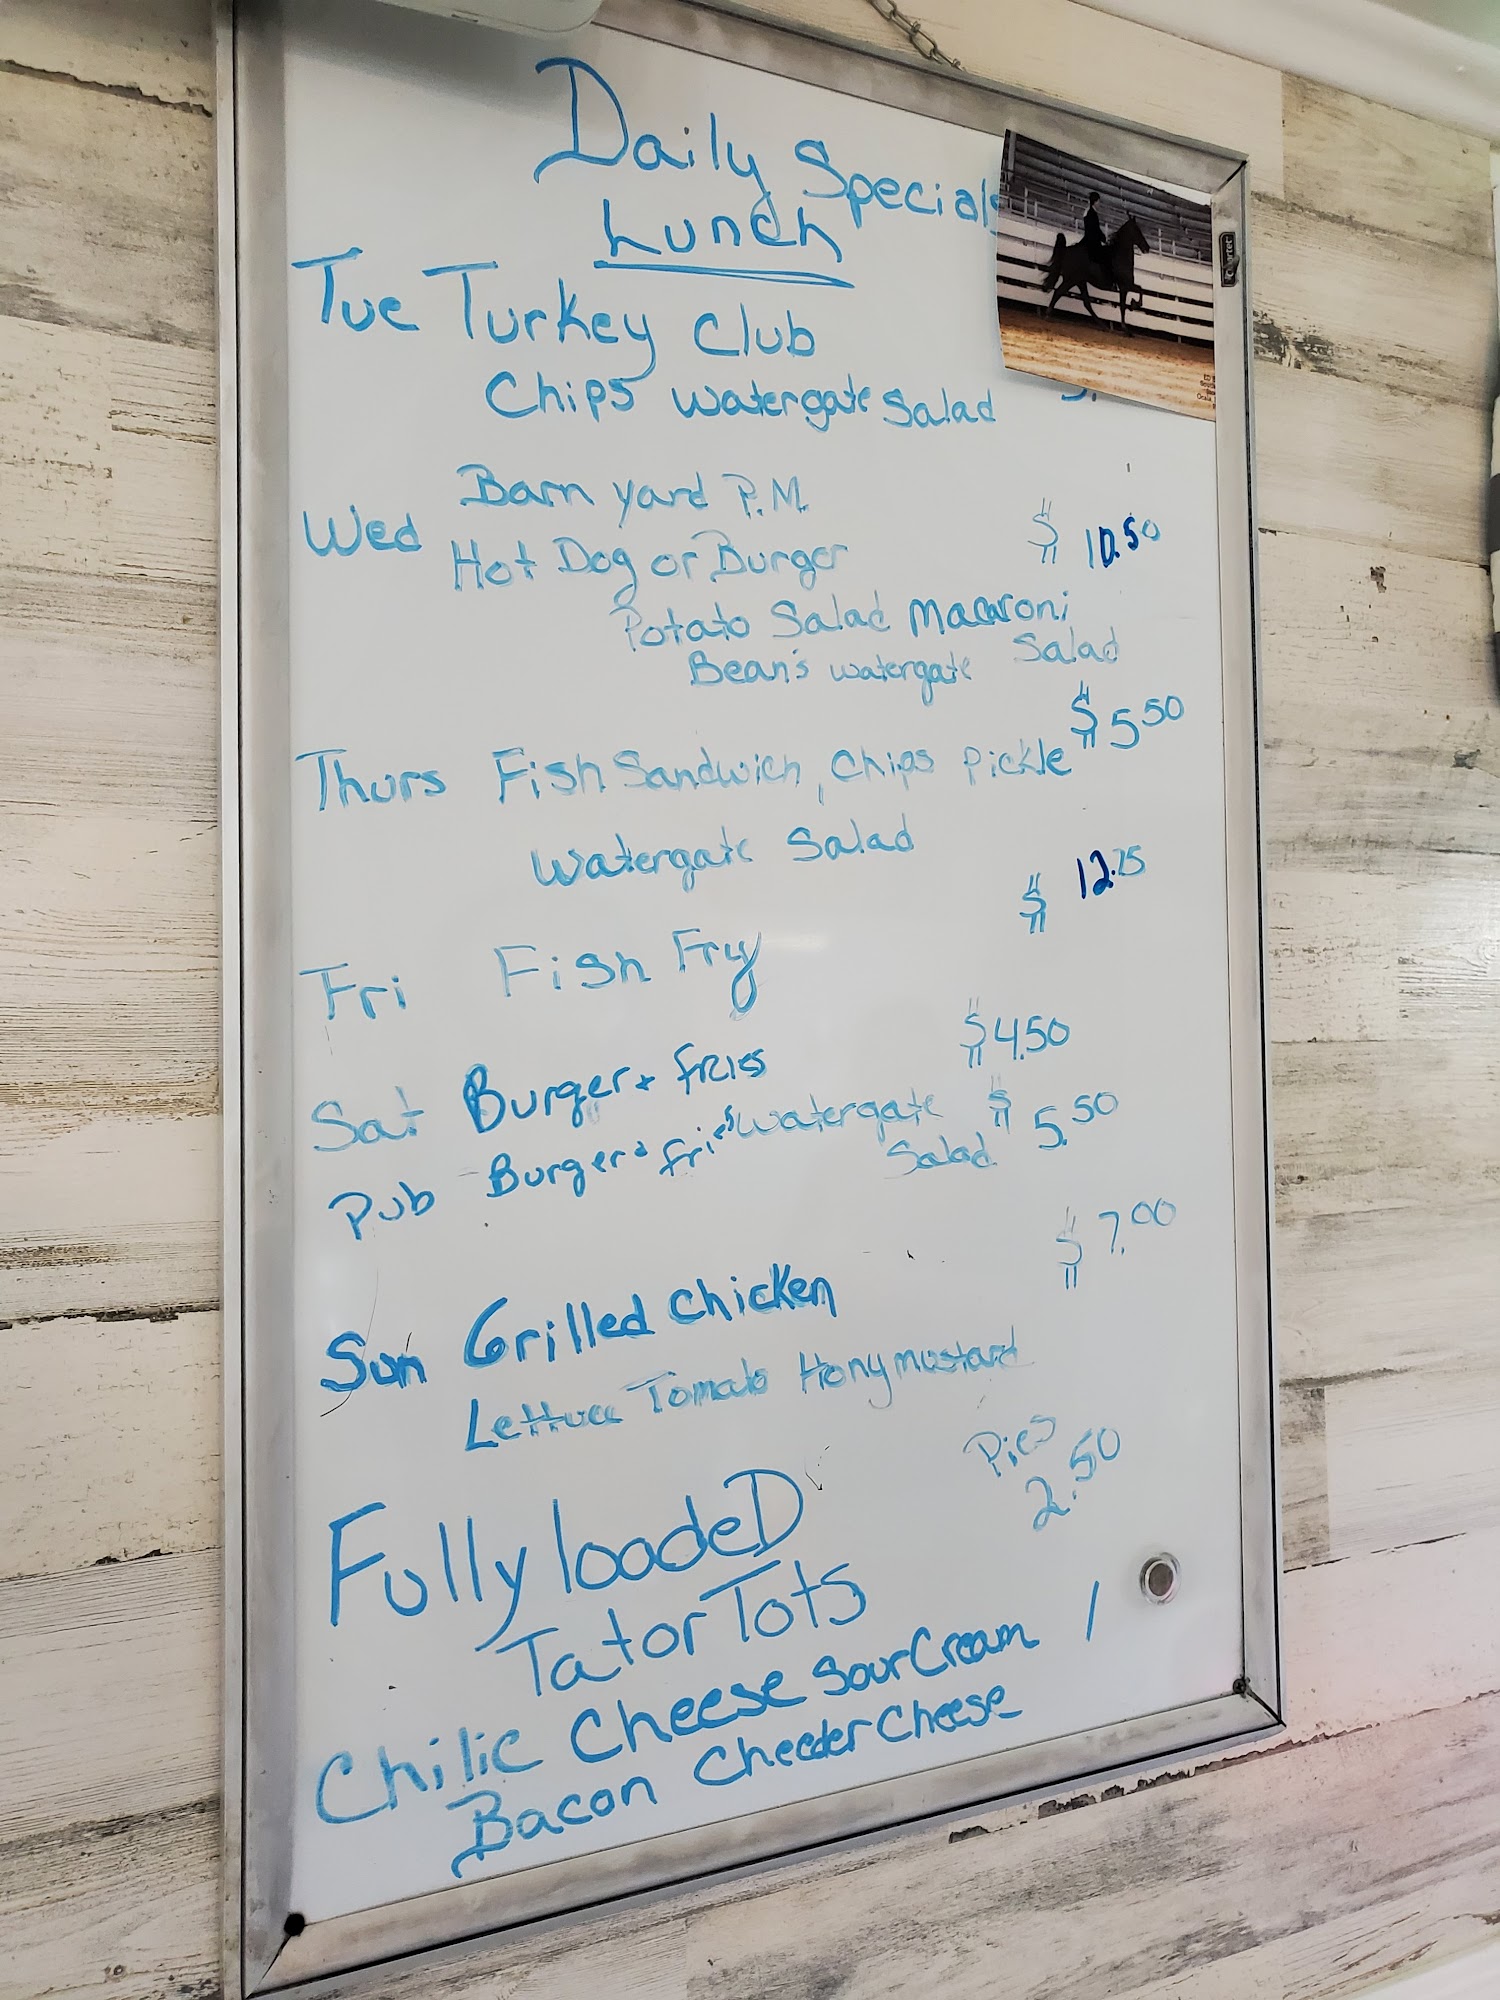 Daily Specials
Lunch
Tue Turkey Club
Chips Watergate Salad
Barn yard P.M.
Wed Hot Dog or Burger $ 10.50
Potato Salad Macaroni
Bean's Watergate Salad
Thurs Fish Sandwich, Chips Pickle $5.50
Watergate Salad
Fri Fish Fry $ 12.75
Sat Burger + Fries $4.50
Pub Burger + fries Watergate Salad $5.50
Sun Grilled Chicken $7.00
Lettuce Tomato Hony mustard
Pies
2.50
Fully loadeD
Tator Tots
Chilie Cheese Sour Cream /
Bacon Cheeder Cheese